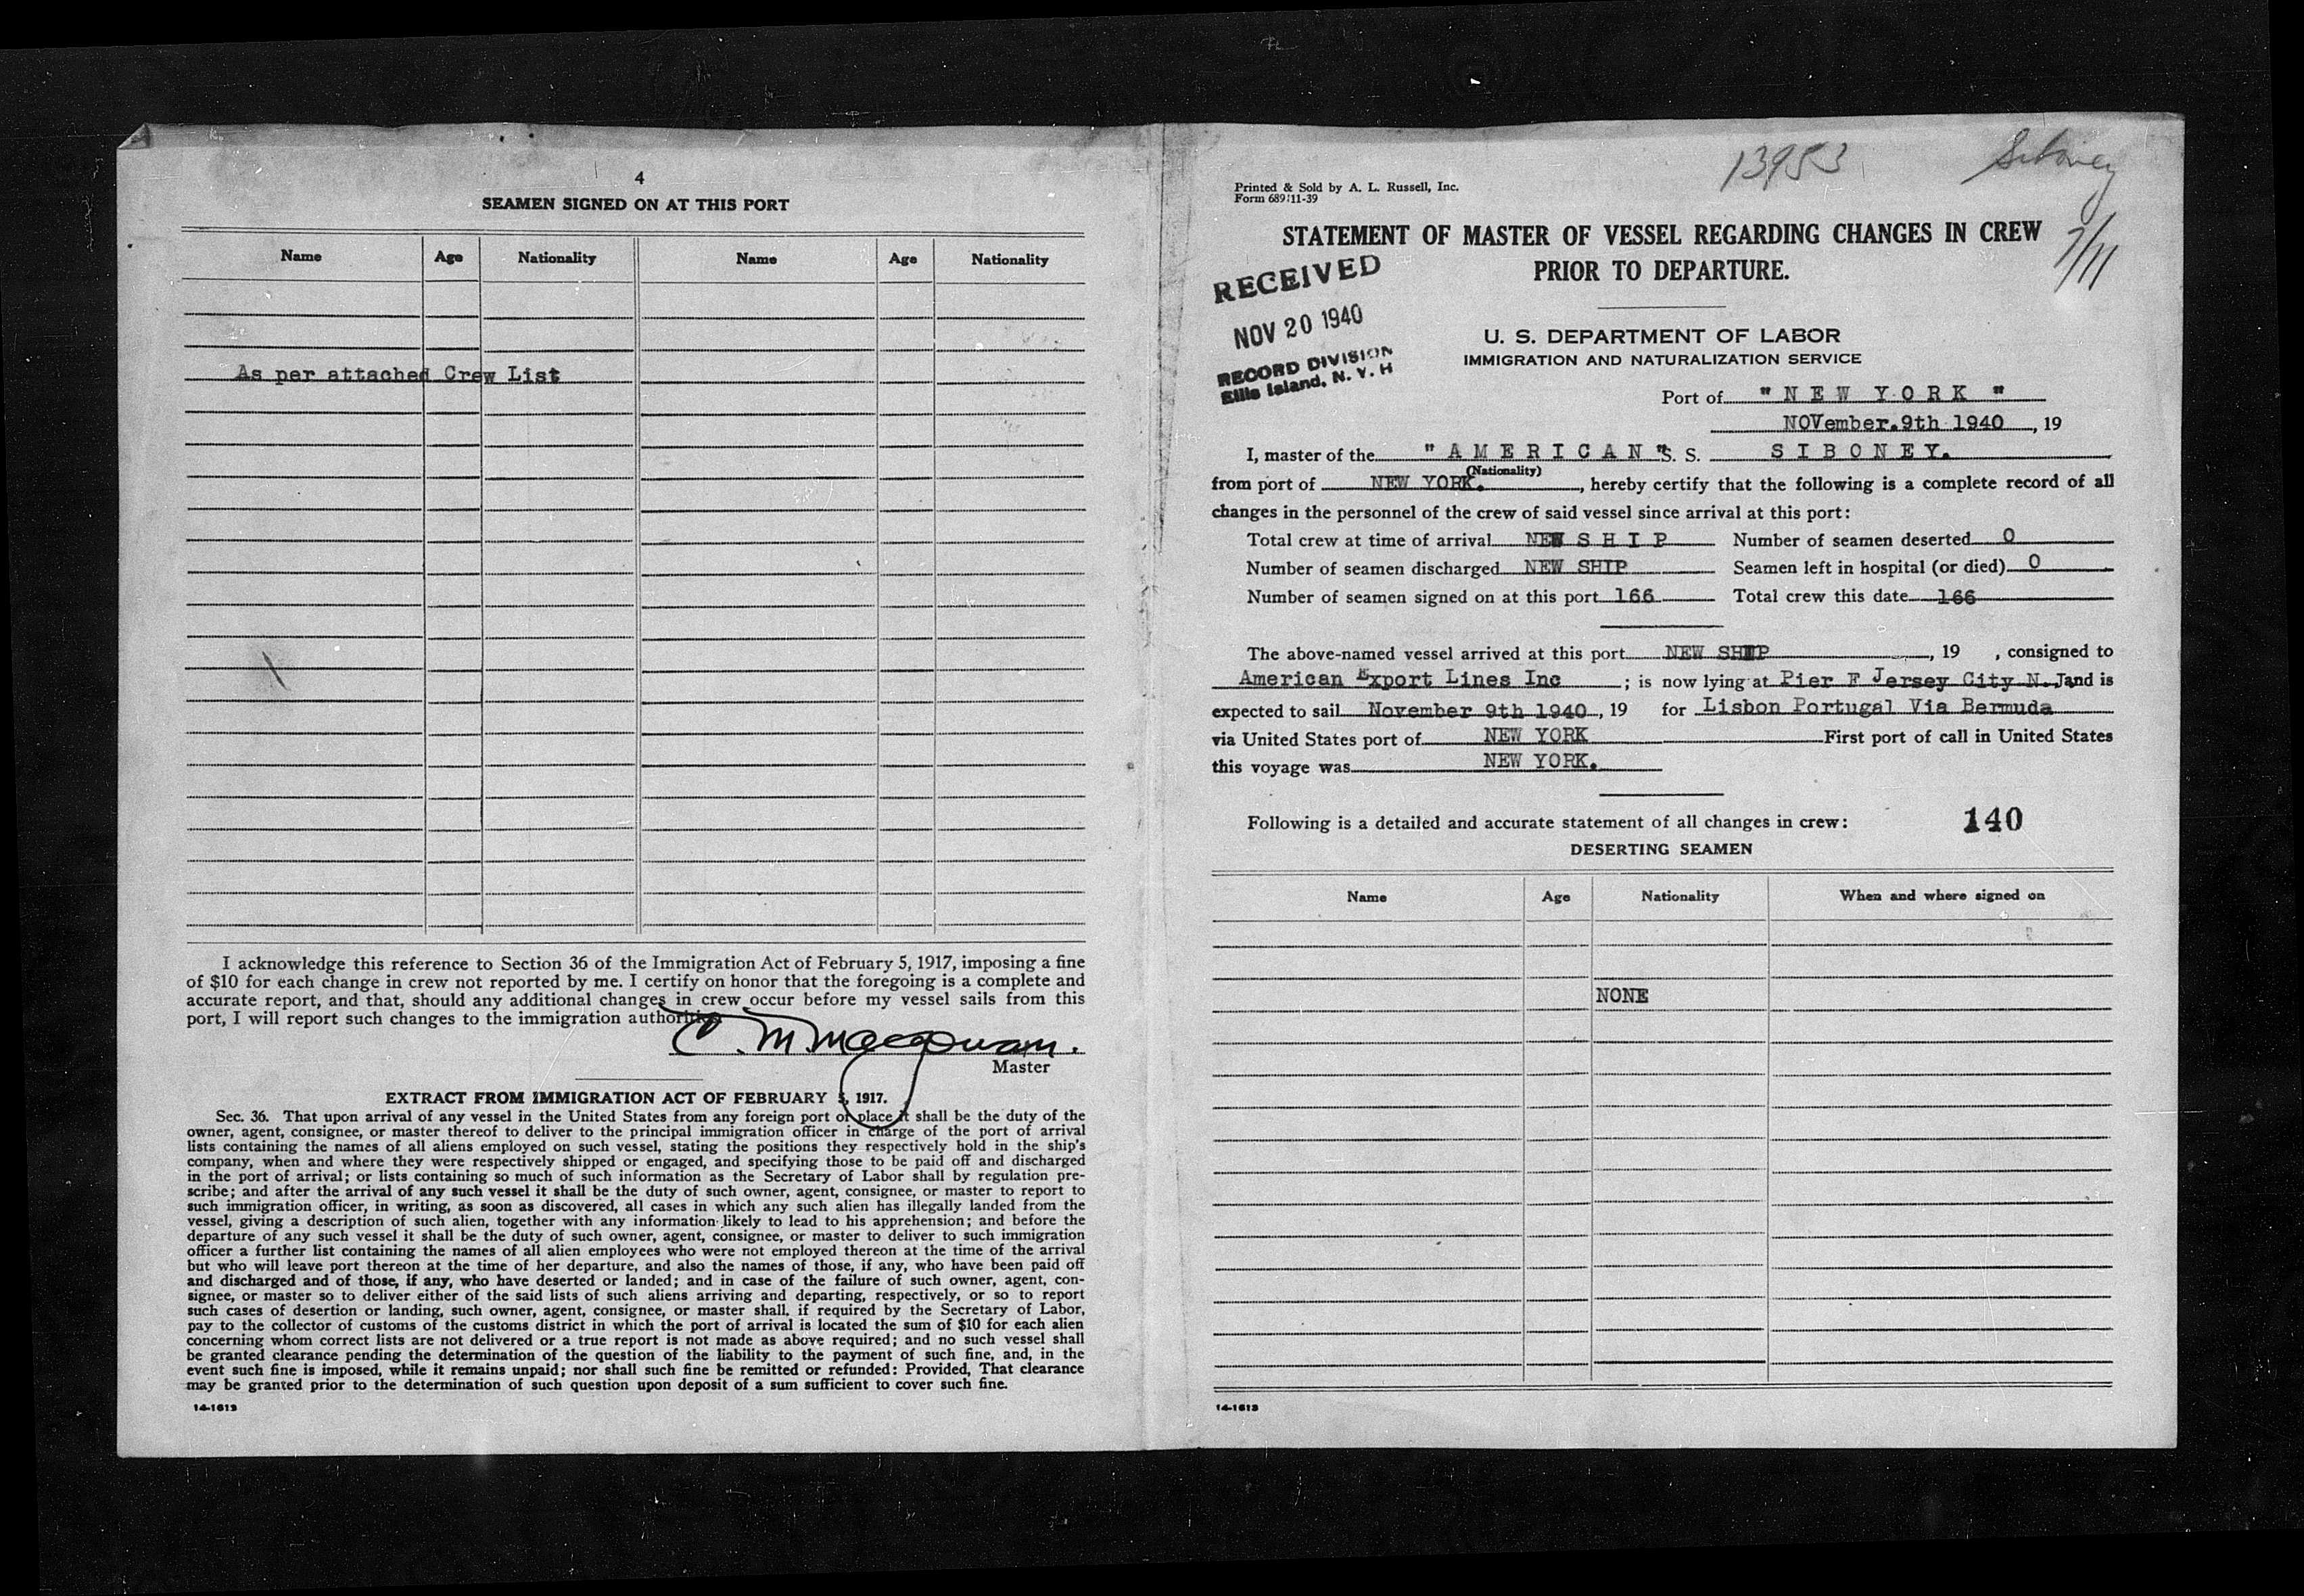 4
SEAMEN SIGNED ON AT THIS PORT
Name Age Nationality Name Age Nationality
As per attached Crew List
I acknowledge this reference to Section 36 of the Immigration Act of February 5, 1917, imposing a fine
of $10 for each change in crew not reported by me. I certify on honor that the foregoing is a complete and
accurate report, and that, should any additional changes in crew occur before my vessel sails from this
port, I will report such changes to the immigration authorities
Master
EXTRACT FROM IMMIGRATION ACT OF FEBRUARY 5, 1917.
Sec. 36. That upon arrival of any vessel in the United States from any foreign port or place it shall be the duty of the
owner, agent, consignee, or master thereof to deliver to the principal immigration officer in charge of the port of arrival
lists containing the names of all aliens employed on such vessel, stating the positions they respectively hold in the ship's
company, when and where they were respectively shipped or engaged, and specifying those to be paid off and discharged
in the port of arrival; or lists containing so much of such information as the Secretary of Labor shall by regulation pre-
scribe; and after the arrival of any such vessel it shall be the duty of such owner, agent, consignee, or master to report to
such immigration officer, in writing, as soon as discovered, all cases in which any such alien has illegally landed from the
vessel, giving a description of such alien, together with any information likely to lead to his apprehension; and before the
departure of any such vessel it shall be the duty of such owner, agent, consignee, or master to deliver to such immigration
officer a further list containing the names of all alien employees who were not employed thereon at the time of the arrival
but who will leave port thereon at the time of her departure, and also the names of those, if any, who have been paid off
and discharged and of those, if any, who have deserted or landed; and in case of the failure of such owner, agent, con-
signee, or master so to deliver either of the said lists of such aliens arriving and departing, respectively, or so to report
such cases of desertion or landing, such owner, agent, consignee, or master shall, if required by the Secretary of Labor,
pay to the collector of customs of the customs district in which the port of arrival is located the sum of $10 for each alien
concerning whom correct lists are not delivered or a true report is not made as above required; and no such vessel shall
be granted clearance pending the determination of the question of the liability to the payment of such fine, and, in the
event such fine is imposed, while it remains unpaid; nor shall such fine be remitted or refunded: Provided, That clearance
may be granted prior to the determination of such question upon deposit of a sum sufficient to cover such fine.
14-1613
13953 Siboney
7/11
Printed & Sold by A. L. Russell, Inc.
Form 689:11-39
STATEMENT OF MASTER OF VESSEL REGARDING CHANGES IN CREW
PRIOR TO DEPARTURE.
RECEIVED
NOV 20 1940
RECORD DIVISION
Ellis Island, N. Y. H
U. S. DEPARTMENT OF LABOR
IMMIGRATION AND NATURALIZATION SERVICE
Port of "NEW YORK"
NOVember.9th 1940, 19
I, master of the "AMERICAN" S. S. SIBONEY.
(Nationality)
from port of NEW YORK., hereby certify that the following is a complete record of all
changes in the personnel of the crew of said vessel since arrival at this port:
Total crew at time of arrival NEW SHIP Number of seamen deserted 0
Number of seamen discharged NEW SHIP Seamen left in hospital (or died) 0
Number of seamen signed on at this port 166 Total crew this date 166
The above-named vessel arrived at this port NEW SHIP, 19 , consigned to
American Export Lines Inc ; is now lying at Pier F Jersey City N.J and is
expected to sail November 9th 1940, 19 for Lisbon Portugal Via Bermuda
via United States port of NEW YORK First port of call in United States
this voyage was NEW YORK.
Following is a detailed and accurate statement of all changes in crew: 140
DESERTING SEAMEN
Name Age Nationality When and where signed on
NONE
14-1613